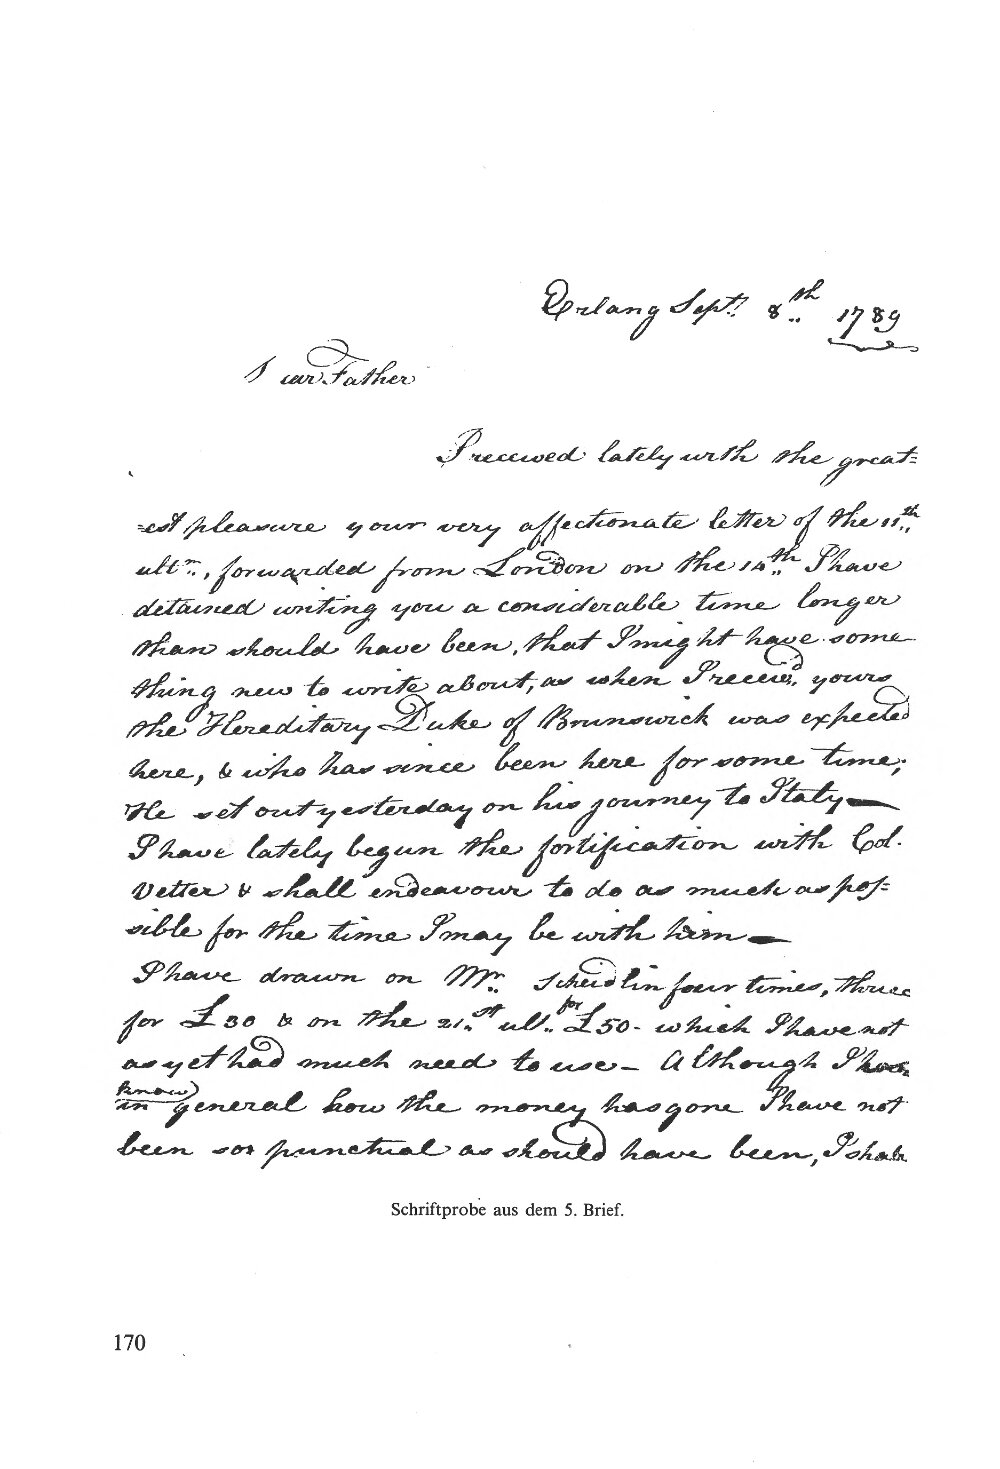 Erlang Sept.r 8.th 1789
Dear Father
I received lately with the great=
=est pleasure your very affectionate letter of the 11.th
ult.m, forwarded from London on the 14.th I have
detained writing you a considerable time longer
than should have been, that I might have some
thing new to write about, as when I receiv.d yours
the Hereditary Duke of Brunswick was expected
here, & who has since been here for some time;
He set out yesterday on his journey to Italy—
I have lately begun the fortification with Col.
Vetter & shall endeavour to do as much as pos=
sible for the time I may be with him—
I have drawn on Mr. Scheidlin four times, thrice
for £30 & on the 21.st ult. for £50- which I have not
as yet had much need to use– Although I
know
in general how the money has gone I have not
been so punctual as should have been, I shall
Schriftprobe aus dem 5. Brief.
170